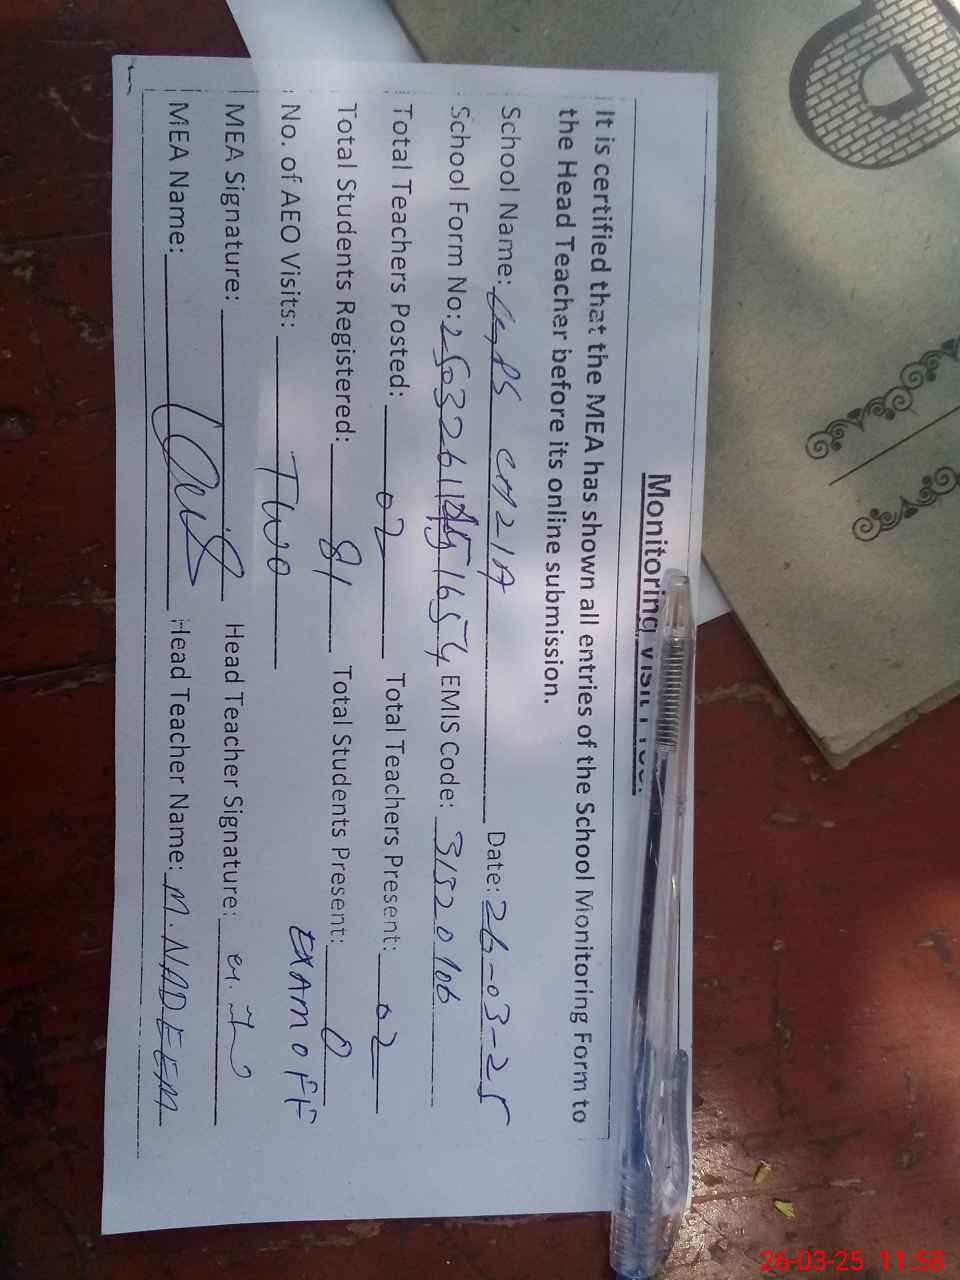 Monitoring Visit
It is certified that the MEA has shown all entries of the School Monitoring Form to
the Head Teacher before its online submission.
School Name: PS Date: 26-03-25
School Form No: EMIS Code: 31320106
Total Teachers Posted: 02 Total Teachers Present: 02
Total Students Registered: 81 Total Students Present: 0
No. of AEO Visits: Two EXAM OFF
MEA Signature: Head Teacher Signature:
MEA Name: Head Teacher Name: M. NADEEM
26-03-25 11:58